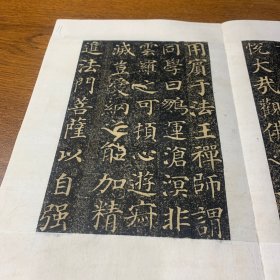 悅大哉
用賓于法王禪師謂
同學曰鵬運滄溟非
雲羅之可頓心遊寂
滅豈愛網之能加精
進法門菩薩以自强